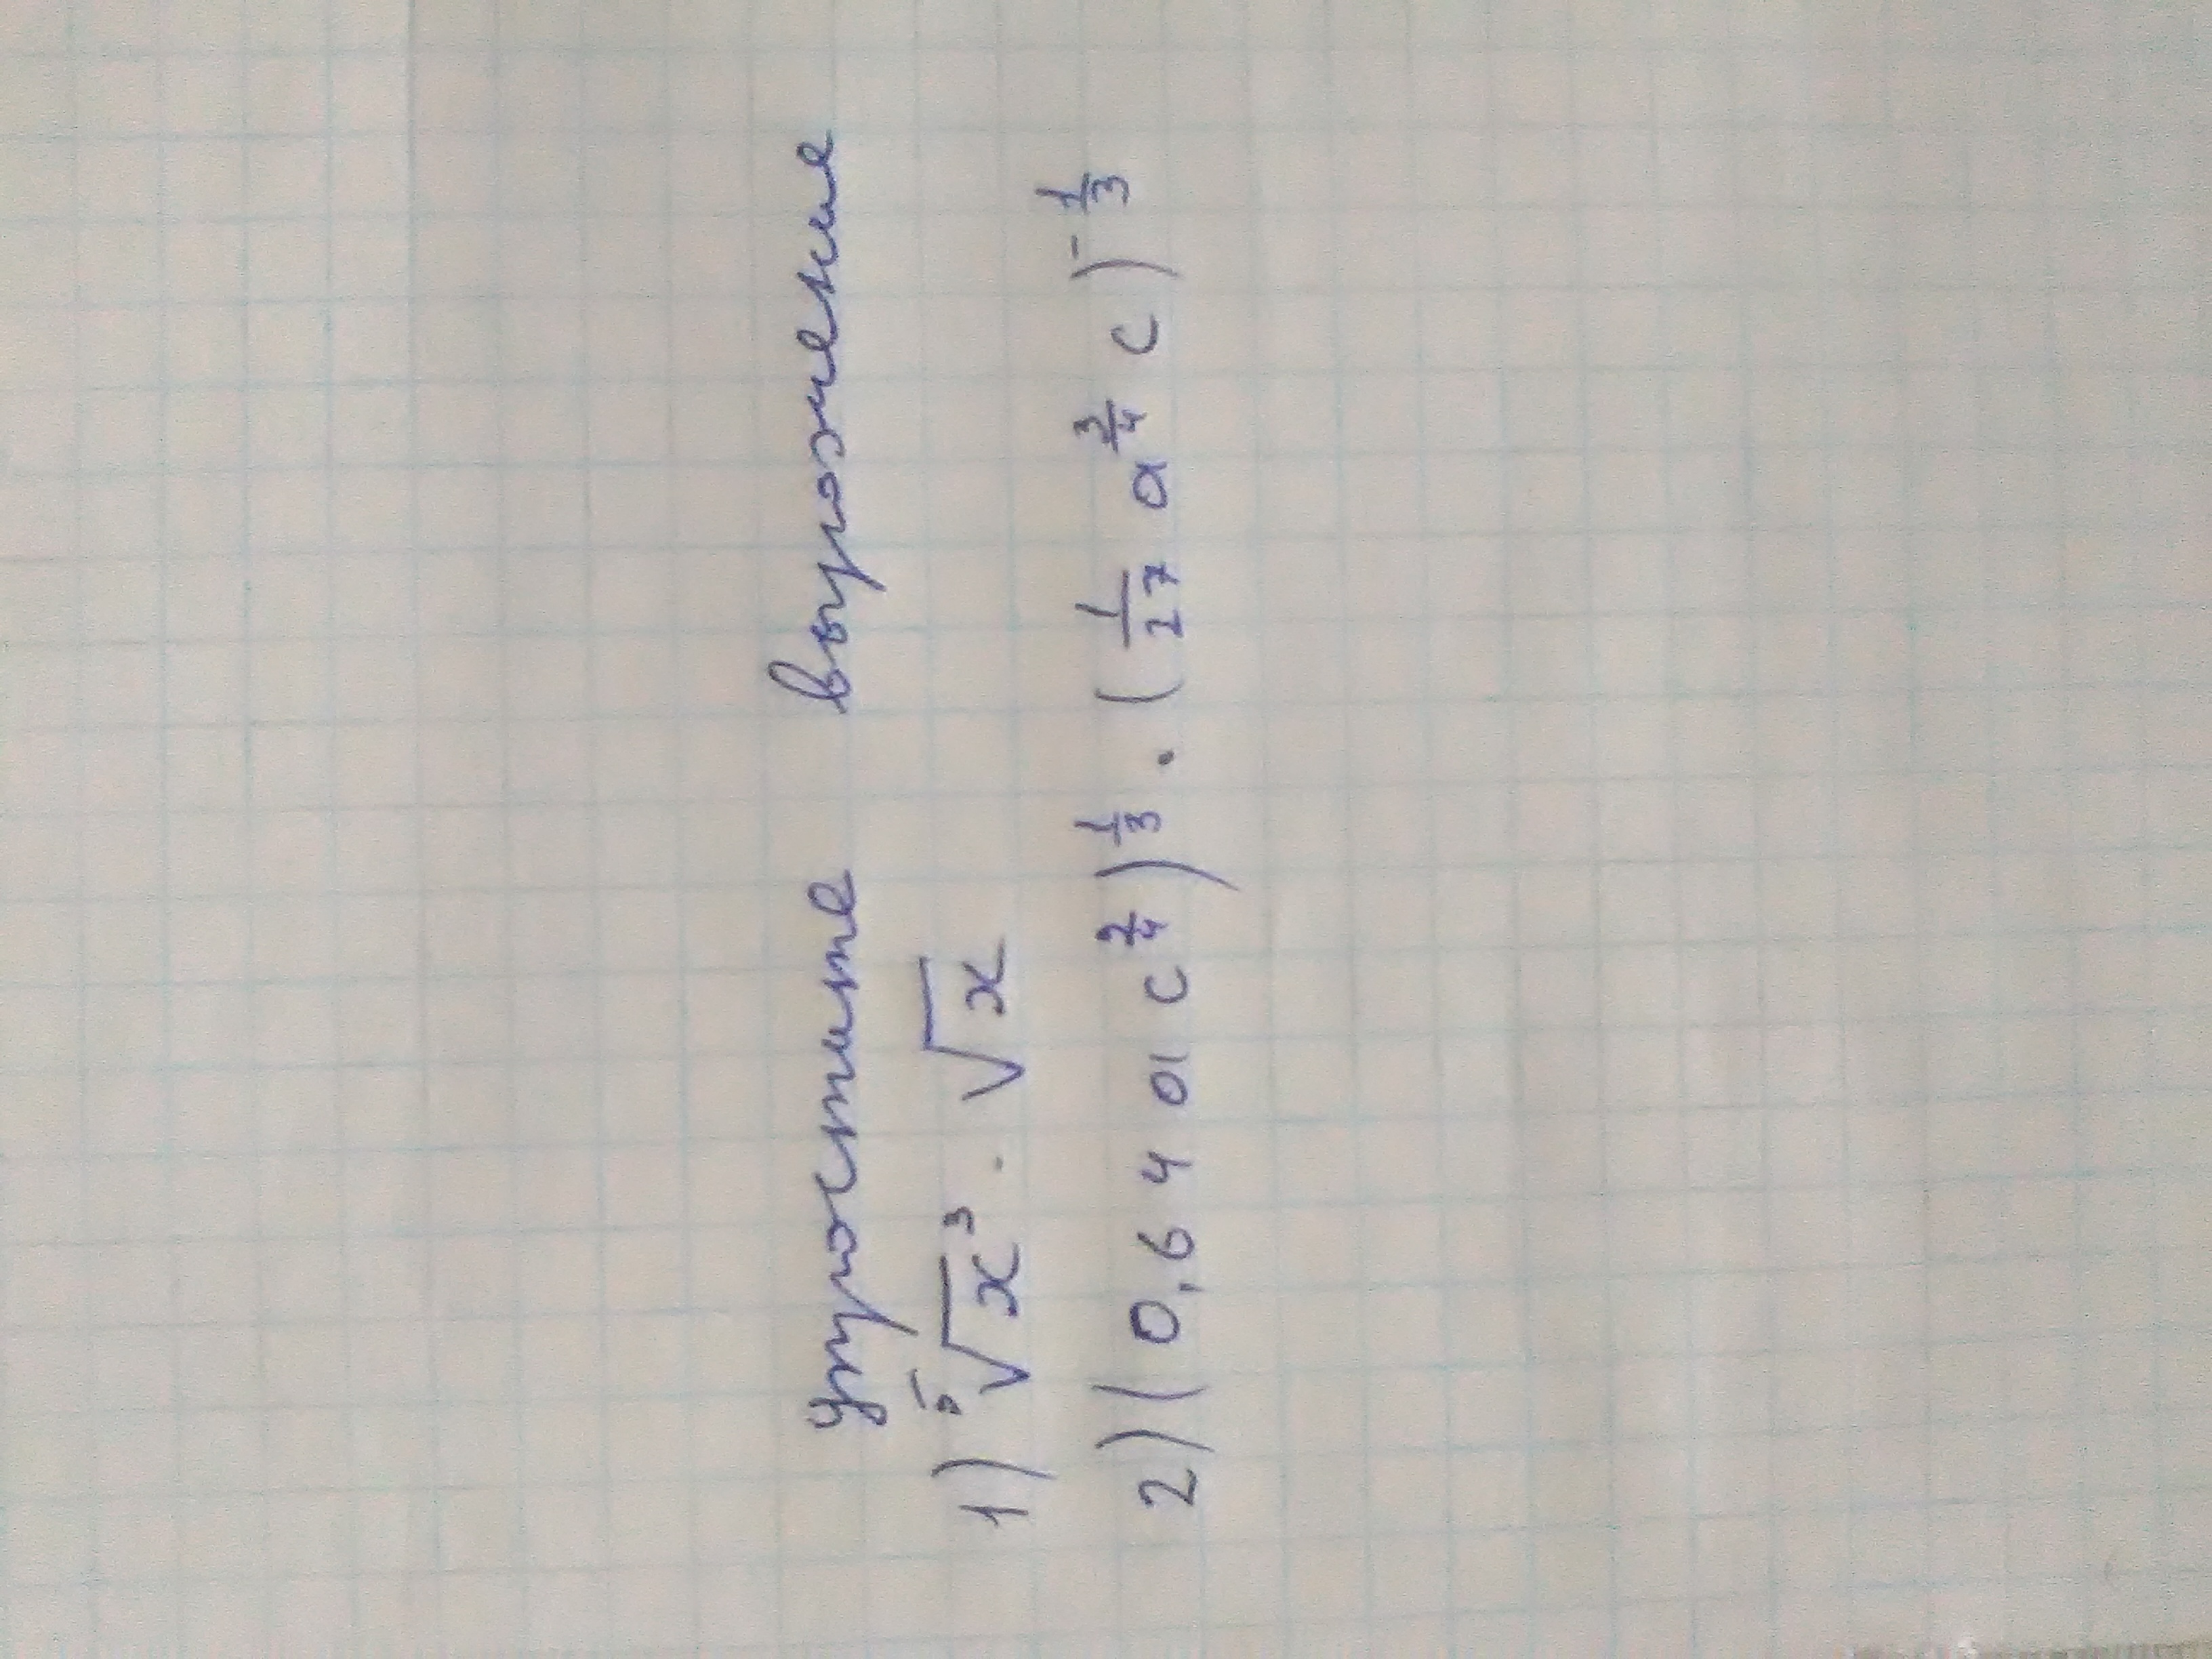 Упростите выражение
1) ⁵√x³ · √x
2) (0,64 a c^{3/4})^{1/3} · (1/27 a^{3/4} c)^{-1/3}